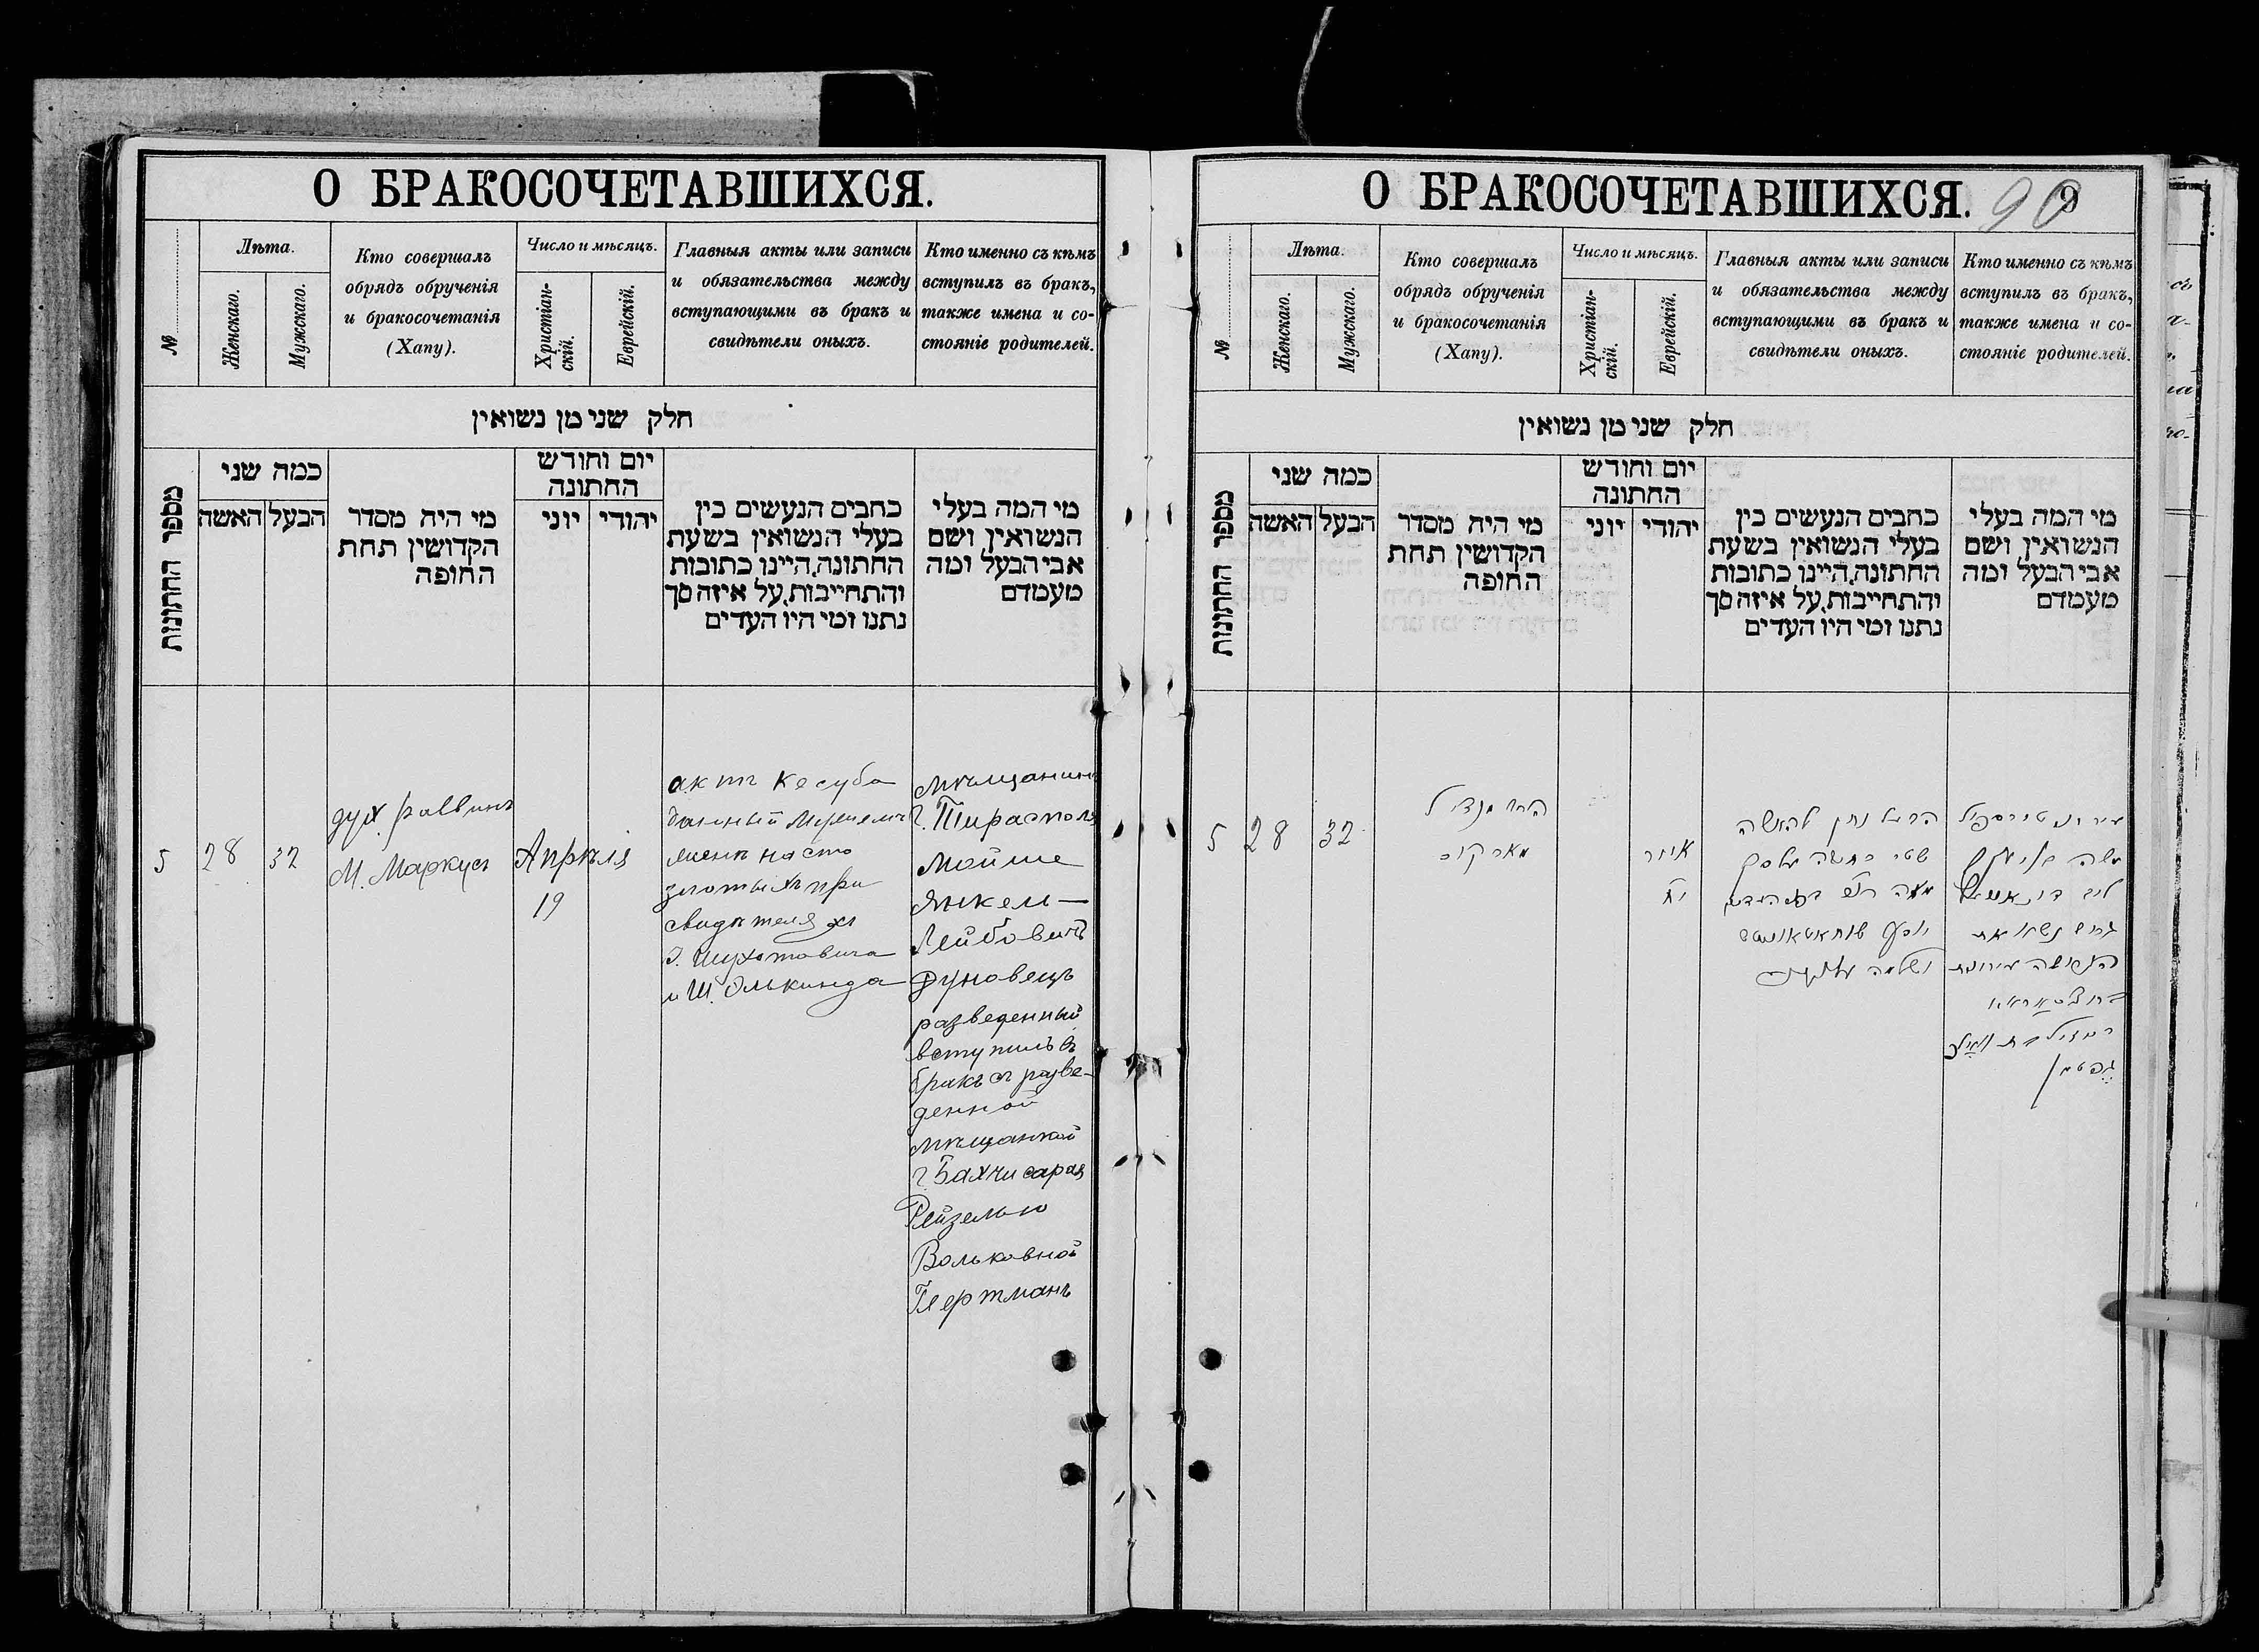 О БРАКОСОЧЕТАВШИХСЯ.
№
Лѣта.
Женскаго.
Мужскаго.
Кто совершалъ
обрядъ обрученія
и бракосочетанія
(Хапу).
Число и мѣсяцъ.
Христіан-
скій.
Еврейскій.
Главныя акты или записи
и обязательства между
вступающими въ бракъ и
свидѣтели оныхъ.
Кто именно съ кѣмъ
вступилъ въ бракъ,
также имена и со-
стояніе родителей.
חלק שני מן נשואין
מספר החתונות
כמה שני
האשה
הבעל
מי היה מסדר
הקדושין תחת
החופה
יום וחודש
החתונה
יוני
יהודי
כתבים הנעשים בין
בעלי הנשואין בשעת
החתונה, היינו כתובות
והתחייבות, על איזה סך
נתנו ומי היו העדים
מי המה בעלי
הנשואין ושם
אבי הבעל ומה
מעמדם
5
28
32
дух. раввинъ
М. Маркусъ
Апрѣля
19
актъ кесуба
данный
на сто
злотыхъ при
свидѣтеляхъ
Шухотовича
и Ш. Элькинда
мѣщанинъ
г. Тирасполя
Мойше
Янкель-
Лейбовичъ
Дуновецъ
разведенный
вступилъ въ
бракъ съ разве-
денной
мѣщанкой
г. Бахчисарая
Рейзелью
Вольковной
Гертманъ
О БРАКОСОЧЕТАВШИХСЯ.
90
9
№
Лѣта.
Женскаго.
Мужскаго.
Кто совершалъ
обрядъ обрученія
и бракосочетанія
(Хапу).
Число и мѣсяцъ.
Христіан-
скій.
Еврейскій.
Главныя акты или записи
и обязательства между
вступающими въ бракъ и
свидѣтели оныхъ.
Кто именно съ кѣмъ
вступилъ въ бракъ,
также имена и со-
стояніе родителей.
חלק שני מן נשואין
מספר החתונות
כמה שני
האשה
הבעל
מי היה מסדר
הקדושין תחת
החופה
יום וחודש
החתונה
יוני
יהודי
כתבים הנעשים בין
בעלי הנשואין בשעת
החתונה, היינו כתובות
והתחייבות, על איזה סך
נתנו ומי היו העדים
מי המה בעלי
הנשואין ושם
אבי הבעל ומה
מעמדם
5
28
32
הרב מנדיל
מארקוס
אייר
יח
הבעל נתן להאשה
שטר כתובה על סך
מאה
יוסף
ושלמה
משה
ליב
גרוש נשא את
הגרושה